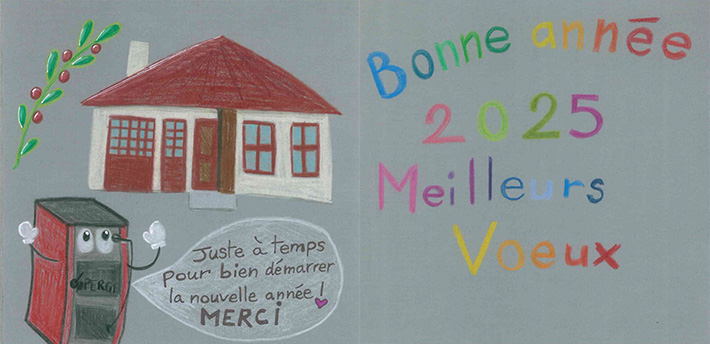 Juste à temps
pour bien démarrer
la nouvelle année !
MERCI
Bonne année
2025
Meilleurs
Voeux